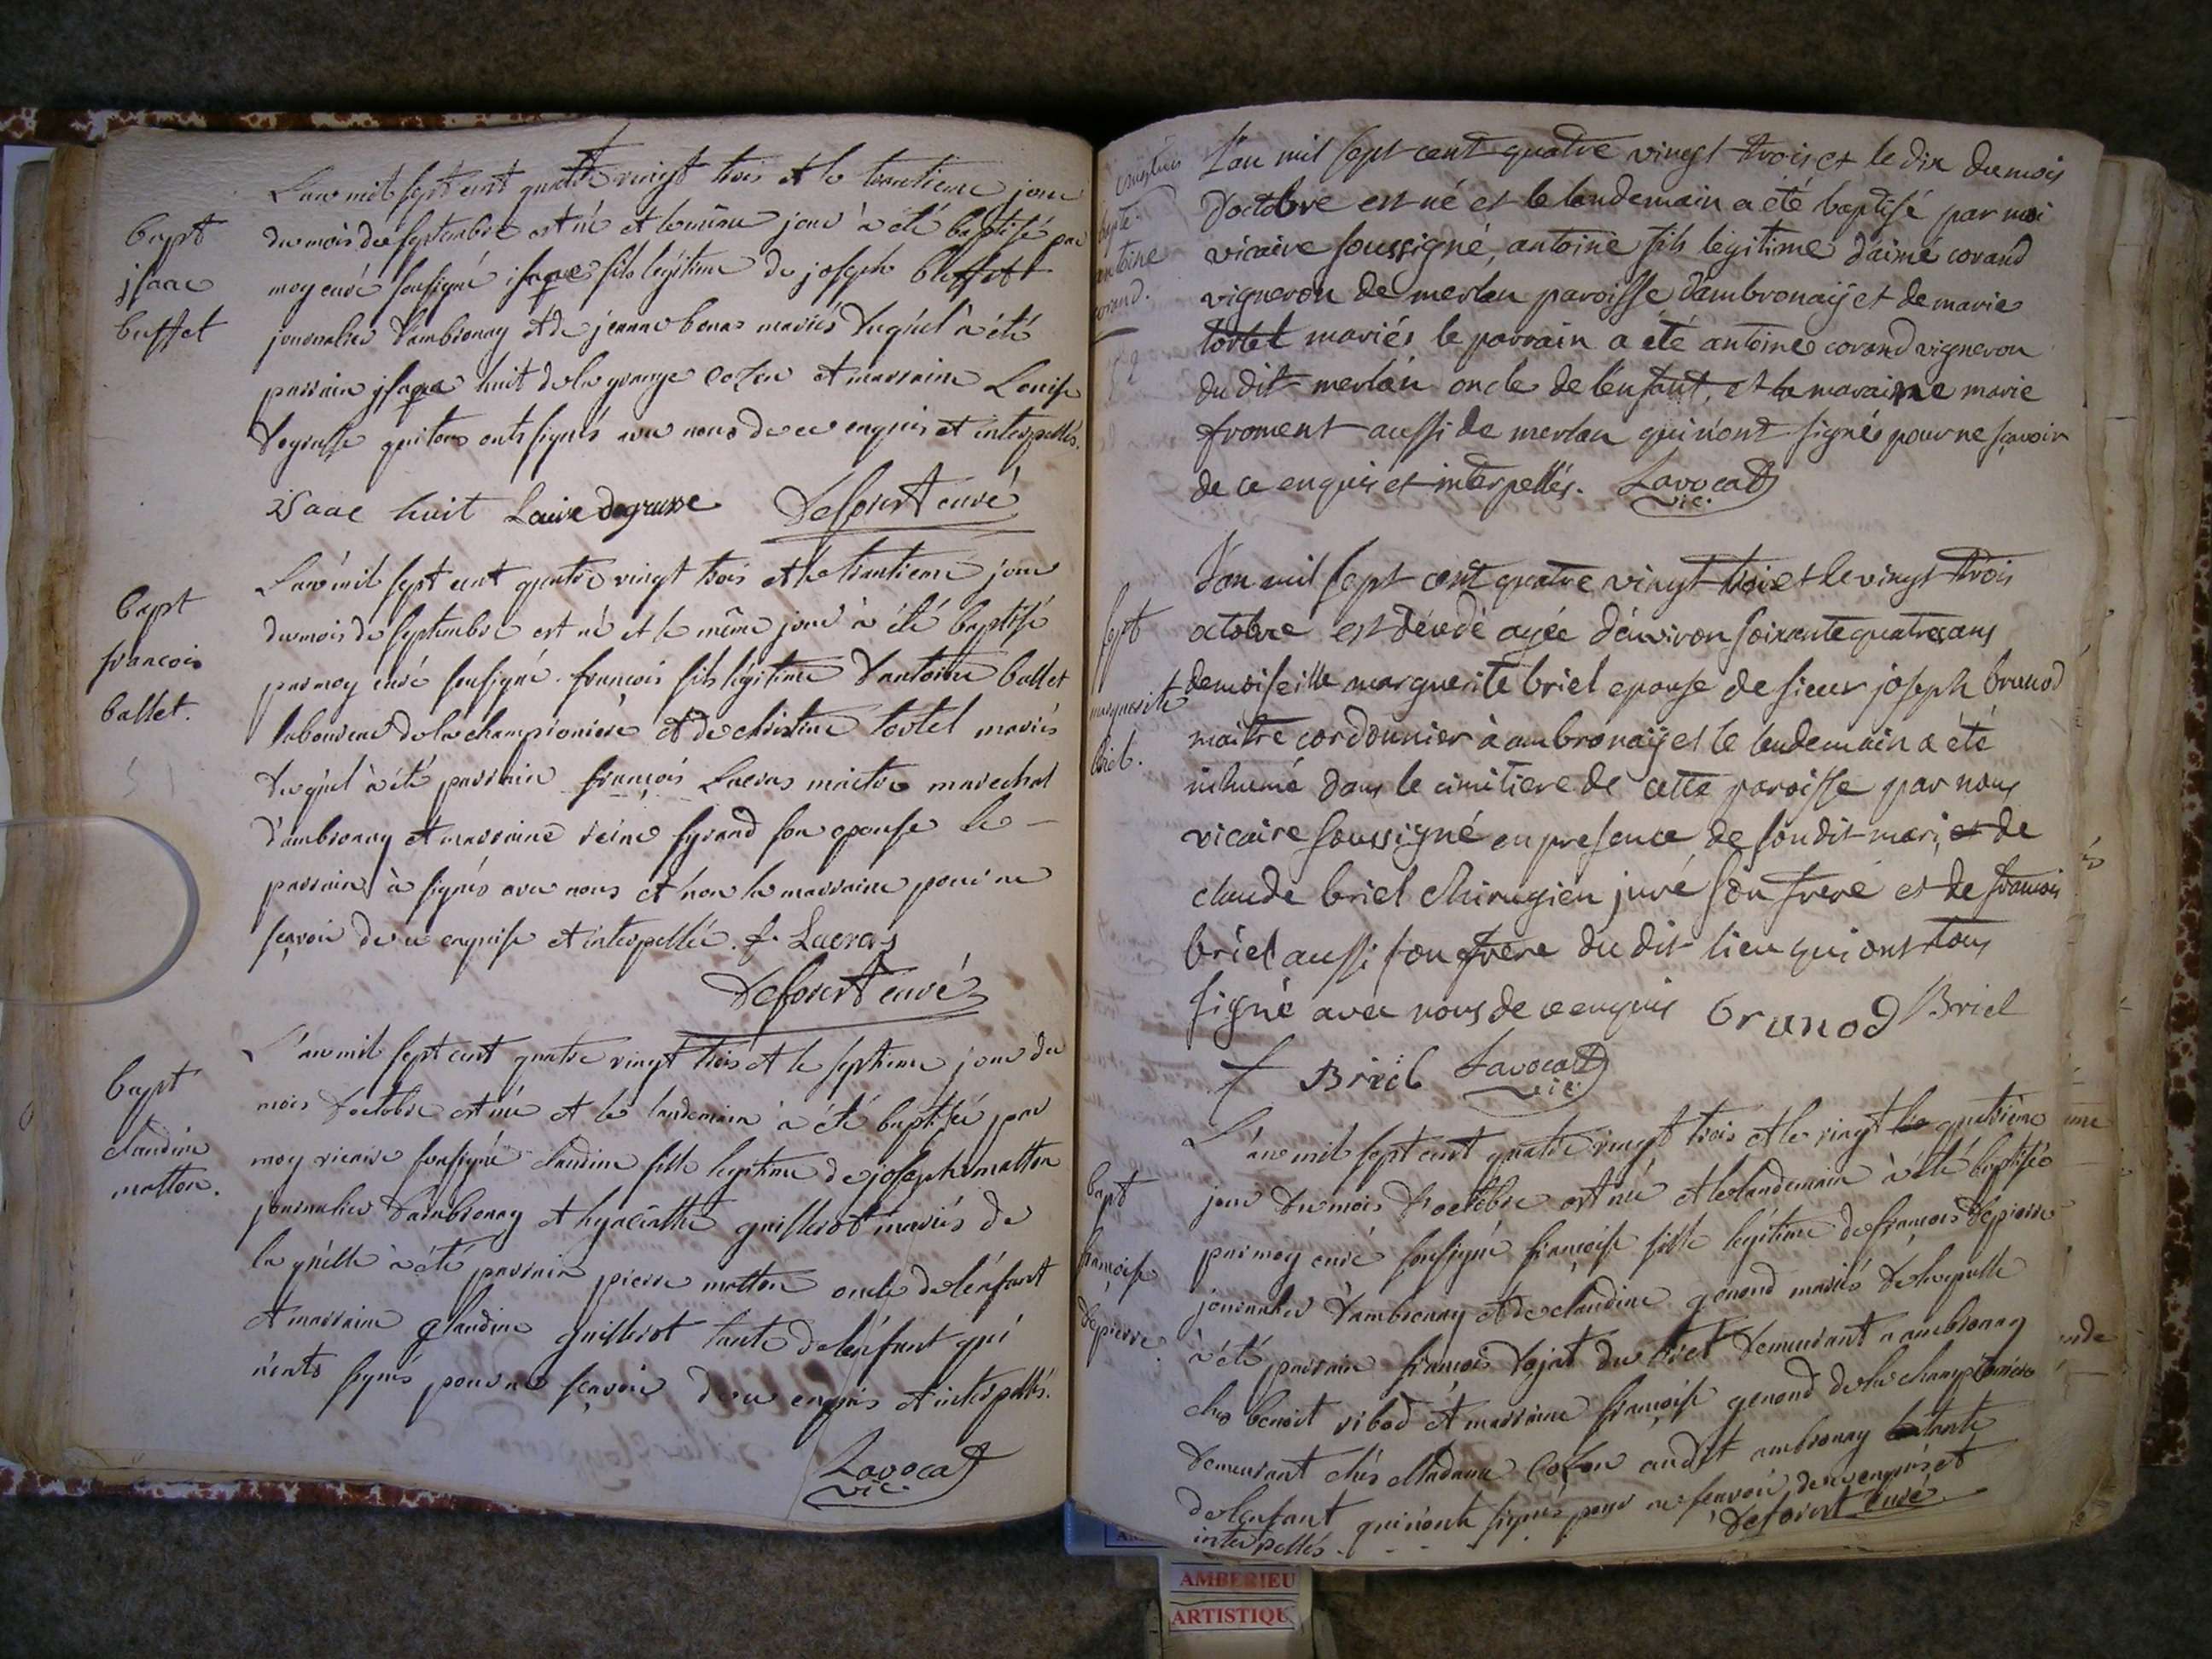 bapt
jsaac
buffet
L'an mil sept cent quatre vingt trois et le trantieme jour
du mois de septembre est né et le même jour à été baptisé par
moy curé sousigné isaac fils légitime de joseph buffet
journalier d'ambronay et de jeanne bonas mariés duquel à été
parrain jsaac huit de la grange cozon et marraine Louise
degrusse qui tous onts signés avec nous de ce enquis et interpellés.
iSaac huit Louise degrusse Defourt curé
bapt
francois
ballet.
L'an mil sept cent quatre vingt trois et le trantieme jour
du mois de septembre est né et le même jour à été baptisé
par moy curé sousigné françois fils légitime d'antoine ballet
laboureur de la championiere et de christine tortel mariés
duquel à été parrain françois Lacras maitre marechal
d'ambronay et marraine reine fyrand son epouse le
parrain à signés avec nous et non la marraine pour ne
sçavoir de ce enquise et interpellée. f. Lacras
Defourt curé
bapt
claudine
matton.
L'an mil sept cent quatre vingt trois et le septieme jour du
mois d'octobre est née et le landemain à été baptisée par
moy vicaire sousigné claudine fille legitime de joseph matton
journalier d'ambronay et hyacinthe guillerot mariés de
laquelle à été parrain pierre matton oncle de l'enfant
et marraine claudine guillerot tante de l'enfant qui
n'onts signés pour ne sçavoir de ce enquis et interpellés.
Lavocat
vic.
bapte.
antoine
corand.
L'an mil sept cent quatre vingt trois et le dix du mois
d'octobre est né et le landemain a été baptisé par moi
vicaire soussigné, antoine fils légitime d'aimé corand
vigneron de merlan paroisse d'ambronaÿ et de marie
tortel mariés le parrain a été antoine corand vigneron
du dit merlan oncle de l'enfant, et la maraine marie
froment aussi de merlan qui n'ont signés pour ne sçavoir
de ce enquis et interpellés. Lavocat
vic.
sept
marguerite
briel.
L'an mil sept cent quatre vingt trois et le vingt trois
octobre est décedé agée d'environ soixante quatre ans
demoiselle marguerite briel epouse de sieur joseph brunod
maître cordonnier à ambronaÿ et le lendemain a été
inhumé dans le cimitiere de cette paroisse par nous
vicaire soussigné en presence de son dit mari, et de
claude briel chirugien juré son frere et de francois
briel aussi son frere du dit lieu qui ont tous
signé avec nous de ce enquis brunod Briel
f Briel Lavocat
vic.
bapt
françoise
depierre.
L'an mil sept cent quatre vingt trois et le vingt quatrième
jour du mois d'octobre est née et le landemain à été baptisée
par moy curé sousigné françoise fille légitime de françois depierre
journalier d'ambronay et de claudine genond mariés de laquelle
à été parrain francois dejat du demeurant a ambronay
chez benoit ribod et marraine françoise genond de la championiere
demeurant chés Madame cozon audit ambronay tante
de l'enfant qui n'ont signés pour ne sçavoir, de ce enquis et
interpellés. Defourt curé
AMBERIEU
ARTISTIQU